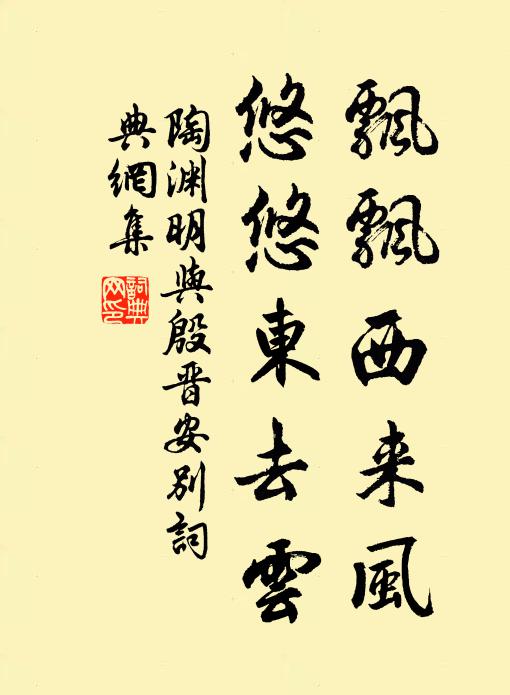 飄飄西来風
悠悠東去雲
陶渊明與殷晋安别詞
典網集
詞典
网印